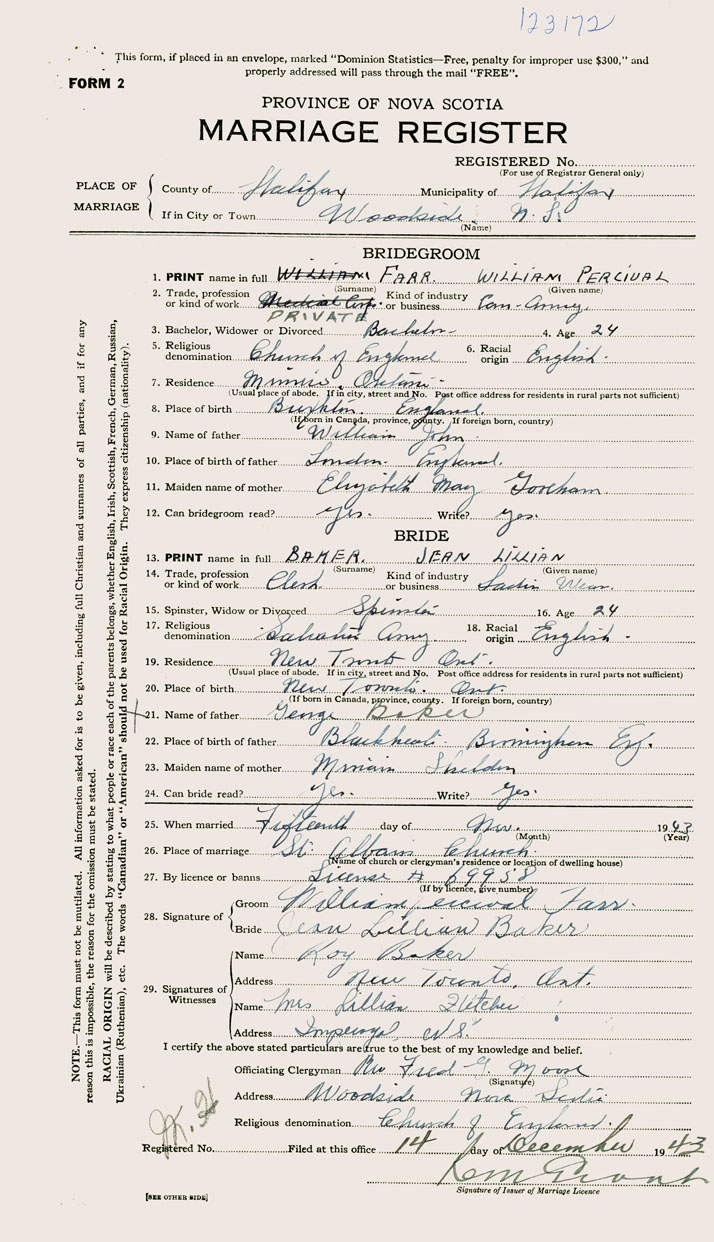 123172
This form, if placed in an envelope, marked "Dominion Statistics—Free, penalty for improper use $300," and
properly addressed will pass through the mail "FREE".
FORM 2
PROVINCE OF NOVA SCOTIA
MARRIAGE REGISTER
REGISTERED No.
(For use of Registrar General only)
PLACE OF MARRIAGE
County of Halifax Municipality of Halifax
If in City or Town Woodside N. S.
(Name)
BRIDEGROOM
1. PRINT name in full WILLIAM FARR. WILLIAM PERCIVAL
(Surname) (Given name)
2. Trade, profession or kind of work Medical Corps. Kind of industry or business Can-Army.
PRIVATE
3. Bachelor, Widower or Divorced Bachelor 4. Age 24
5. Religious denomination Church of England 6. Racial origin English.
7. Residence Mimico, Ontario
(Usual place of abode. If in city, street and No. Post office address for residents in rural parts not sufficient)
8. Place of birth England.
(If born in Canada, province, county. If foreign born, country)
9. Name of father William John
10. Place of birth of father London England.
11. Maiden name of mother Elizabeth May Goreham.
12. Can bridegroom read? yes. Write? yes.
BRIDE
13. PRINT name in full BAKER. JEAN LILLIAN
(Surname) (Given name)
14. Trade, profession or kind of work Clerk Kind of industry or business Ladies Wear.
15. Spinster, Widow or Divorced Spinster 16. Age 24
17. Religious denomination Salvation Army. 18. Racial origin English.
19. Residence New Toronto Ont.
(Usual place of abode. If in city, street and No. Post office address for residents in rural parts not sufficient)
20. Place of birth New Toronto. Ont.
(If born in Canada, province, county. If foreign born, country)
21. Name of father George Baker
22. Place of birth of father Blackheath Birmingham Eng.
23. Maiden name of mother Miriam Sheldon
24. Can bride read? yes. Write? yes.
25. When married Fifteenth day of Nov. 1943
(Month) (Year)
26. Place of marriage St. Albans Church.
(Name of church or clergyman's residence or location of dwelling house)
27. By licence or banns License # 69958
(If by licence, give number)
28. Signature of
Groom William Percival Farr.
Bride Jean Lillian Baker
29. Signatures of Witnesses
Name Roy Baker
Address New Toronto, Ont.
Name Mrs Lillian Fletcher
Address Imperoyal, N.S.
I certify the above stated particulars are true to the best of my knowledge and belief.
Officiating Clergyman Rev Fred G. Moore
(Signature)
Address Woodside Nova Scotia
Religious denomination Church of England.
Registered No. Filed at this office 14 day of December 1943
Signature of Issuer of Marriage Licence
[SEE OTHER SIDE]
NOTE.—This form must not be mutilated. All information asked for is to be given, including full Christian and surnames of all parties, and if for any
reason this is impossible, the reason for the omission must be stated.
RACIAL ORIGIN will be described by stating to what people or race each of the parents belongs, whether English, Irish, Scottish, French, German, Russian,
Ukrainian (Ruthenian), etc. The words "Canadian" or "American" should not be used for Racial Origin. They express citizenship (nationality).